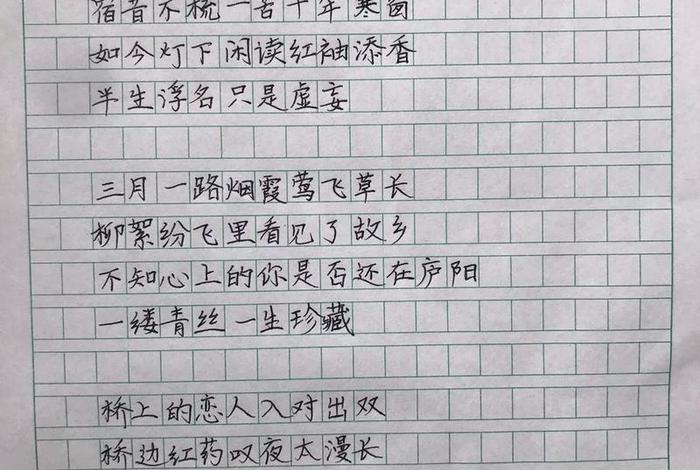 宿昔不梳一苦十年寒窗
如今灯下闲读红袖添香
半生浮名只是虚妄
三月一路烟霞莺飞草长
柳絮纷飞里看见了故乡
不知心上的你是否还在庐阳
一缕青丝一生珍藏
桥上的恋人入对出双
桥边红药叹夜太漫长